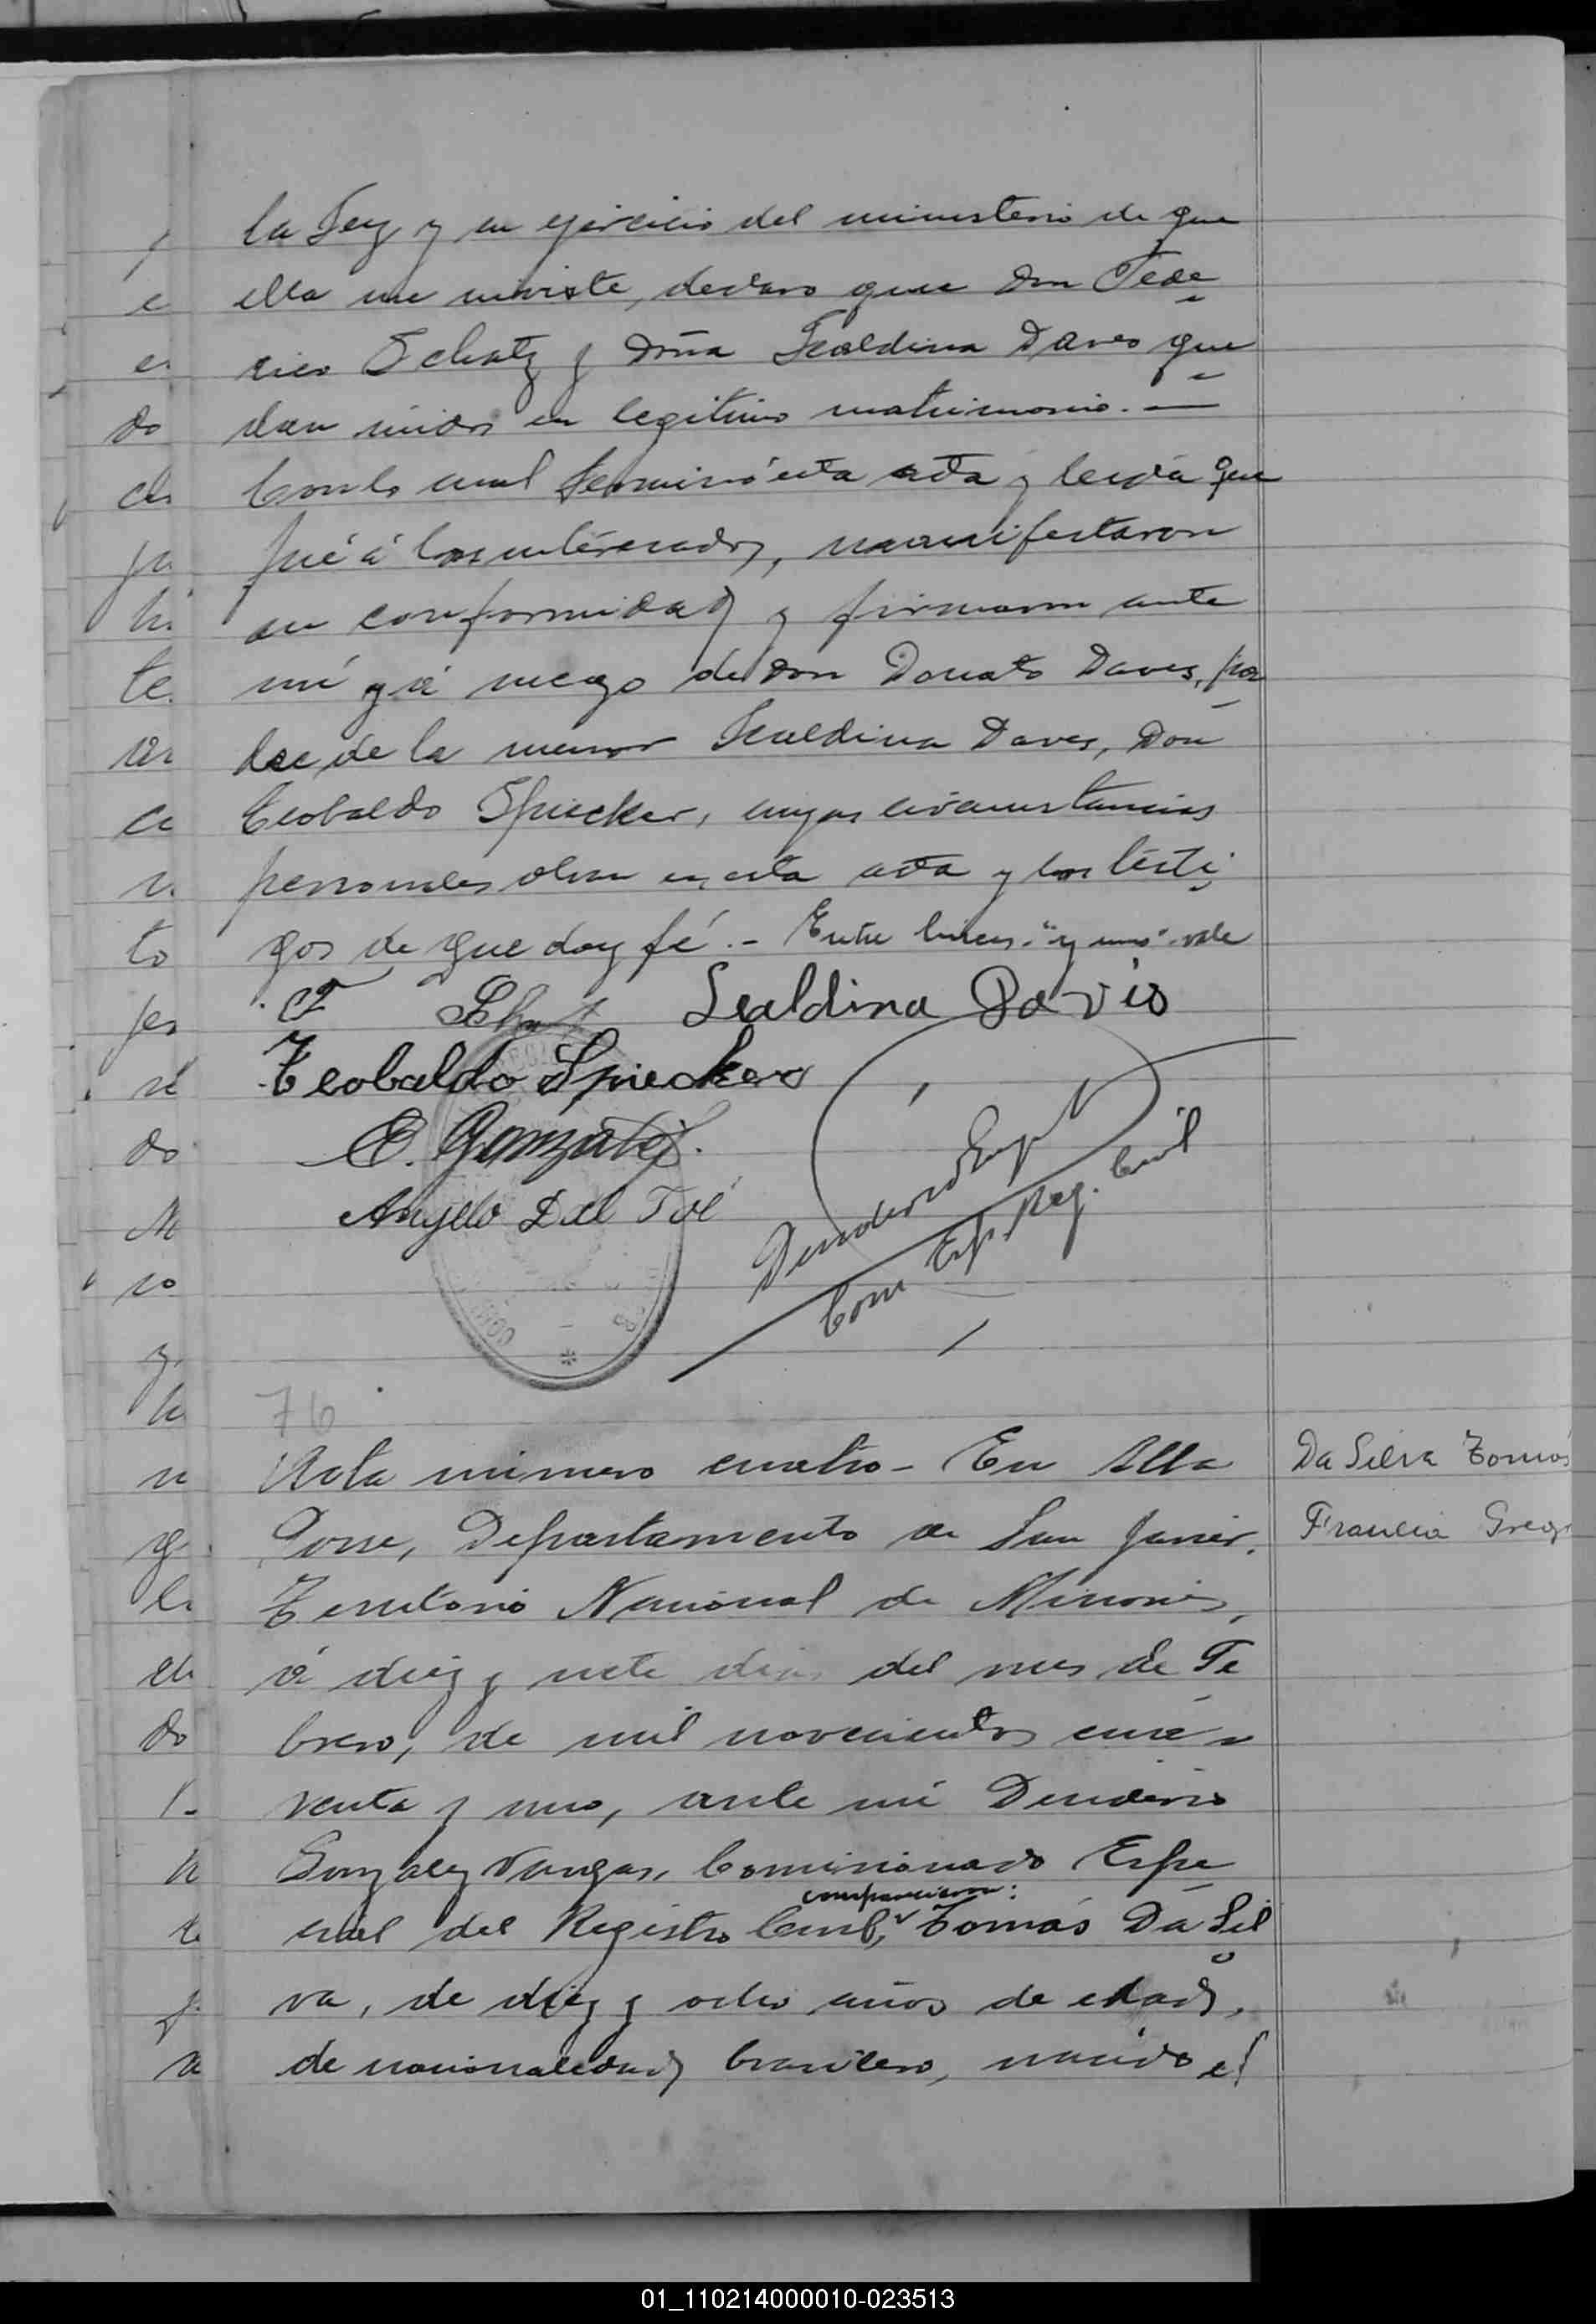 la Ley y en ejercicio del ministerio de que
ella me inviste, declaro que Don Fede
rico Schatz y Doña Scaldina Daves que
dan unidos en legitimo matrimonio. —
Con lo cual terminó esta acta y leida que
fué á los interesados, manifestaron
su conformidad y firmaron ante
mí y á ruego de Don Donato Daves, pa
dre de la menor Scaldina Daves, Don
Teobaldo Spiecker, cuyas circunstancias
personales obran en esta acta y los testi
gos de que doy fé.- Entre lineas: "y uno" vale
F
Scaldina Davis
Teobaldo Spiecker
E. Gonzalez.
Angelo Dal Toé
Com. Esp. Reg. Civil
76
Acta número cuatro- En Alba
Posse, Departamento de San Javier,
Territorio Nacional de Misiones,
á diez y siete dias del mes de Fe
brero, de mil novecientos cua
renta y uno, ante mí Desiderio
Gonzalez Vargas, Comisionado Espe
comparecieron:
cial del Registro Civil, Tomás Da Sil
va, de diez y ocho años de edad,
de nacionalidad brasilero, nacido el
Da Silva Tomás
Francia Greg